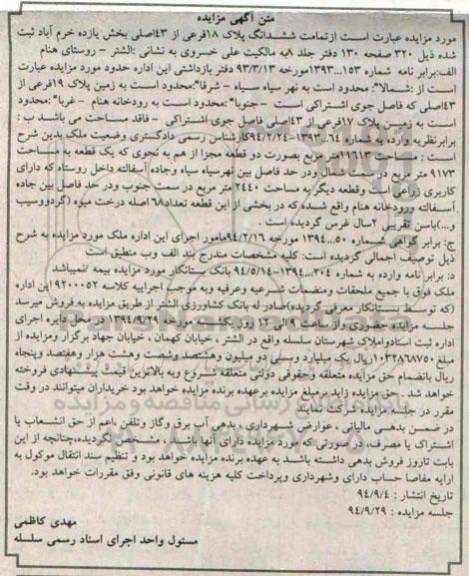 متن آگهی مزایده
مورد مزایده عبارت است ازتمامت ششدانگ پلاک ۱۸فرعی از ۴۳اصلی بخش یازده خرم آباد ثبت
شده ذیل ۳۲۰ صفحه ۱۳۰ دفتر جلد ۸به مالکیت علی خسروی به نشانی :الشتر - روستای هنام
الف:برابر نامه شماره ۱۵۳...۱۳۹۳مورخه ۹۳/۳/۱۳ دفتر بازداشتی این اداره حدود مورد مزایده عبارت
است از :شمالا": محدود است به نهر سیاه سیاه - شرقا":محدود است به زمین پلاک ۱۹فرعی از
۴۳اصلی که فاصل جوی اشتراکی است - جنوبا" :محدود است به رودخانه هنام - غربا" :محدود
است به زمین پلاک ۱۷فرعی از ۴۳اصلی فاصل جوی اشتراکی - فاقد مساحت می باشد ب :
برابرنظریه وارده به شماره ۶۴..۱۳۹۳-۹۴/۲/۲۴کارشناس رسمی دادگستری وضعیت ملک بدین شرح
است : مساحت ۱۱۶۱۳متر مربع بصورت دو قطعه مجزا از هم به نحوی که یک قطعه به مساحت
۹۱۷۳ متر مربع در سمت شمال ودر حد فاصل بین نهرسیاه سیاه وجاده آسفالته داخل روستاه که دارای
کاربری زراعی است وقطعه دیگر به مساحت ۲۴۴۰ متر مربع در سمت جنوب ودر حد فاصل بین جاده
آسفالته ورودخانه هنام واقع شده که در بخشی از این قطعه تعداد۶۸ اصله درخت میوه (گردووسیب
و...)باسن تقریبی ۲سال غرس گردیده است .
ج: برابر گواهی شماره ۵۰...۱۳۹۴ مورخه ۹۴/۲/۱۶مامور اجرای این اداره ملک مورد مزایده به شرح
ذیل توصیف اجمالی گردیده است: کلیه مشخصات مندرج بند الف وب منطبق است
د: برابر نامه وارده به شماره ۲۰۴...۱۳۹۴-۹۴/۵/۱۴ بانک بستانکار مورد مزایده بیمه نمیباشد
ملک فوق با جمیع ملحقات ومنضمات شرعیه وعرفیه وبه موجب اجراییه کلاسه ۹۲۰۰۰۵۲این اداره
(که توسط بستانکار معرفی گردیده)صادر له بانک کشاورزی الشتر از طریق مزایده به فروش میرسد
جلسه مزایده حضوری واز ساعت ۹ الی ۱۲ روز یکشنبه مورخه ۱۳۹۴/۹/۲۹ در محل دایره اجرای
اداره ثبت اسنادواملاک شهرستان سلسله واقع در الشتر ، خیابان کهمان ، خیابان جهاد برگزار ومزایده از
مبلغ ۱۰۳۲۸۶۸۷۵۰ریال یک میلیارد وسی دو میلیون وهشتصد وشصت وهشت هزار وهفتصد وپنجاه
ریال بانضمام حق مزایده متعلقه وحقوقی دولتی متعلقه شروع وبه بالاترین قیمت پیشنهادی فروخته
خواهد شد . حق مزایده زاید برمبلغ مزایده برعهده برنده مزایده خواهد بود خریداران میتوانند در وقت
مقرر در جلسه مزایده شرکت نمایند
در ضمن بدهی مالیاتی ، عوارض شهرداری ، بدهی آب برق وگاز وتلفن ،اعم از حق انشعاب یا
اشتراک یا مصرف، در صورتی که مورد مزایده دارای آنها باشد ، مشخص نگردیده،چنانچه از این
بابت تاروز فروش بدهی داشته باشد به عهده برنده مزایده خواهد بود و تنظیم سند انتقال موکول به
ارایه مفاصا حساب دارای وشهرداری وپرداخت کلیه هزینه های قانونی وفق مقررات خواهد بود.
تاریخ انتشار : ۹۴/۹/۴
جلسه مزایده : ۹۴/۹/۲۹
مهدی کاظمی
مسئول واحد اجرای اسناد رسمی سلسله